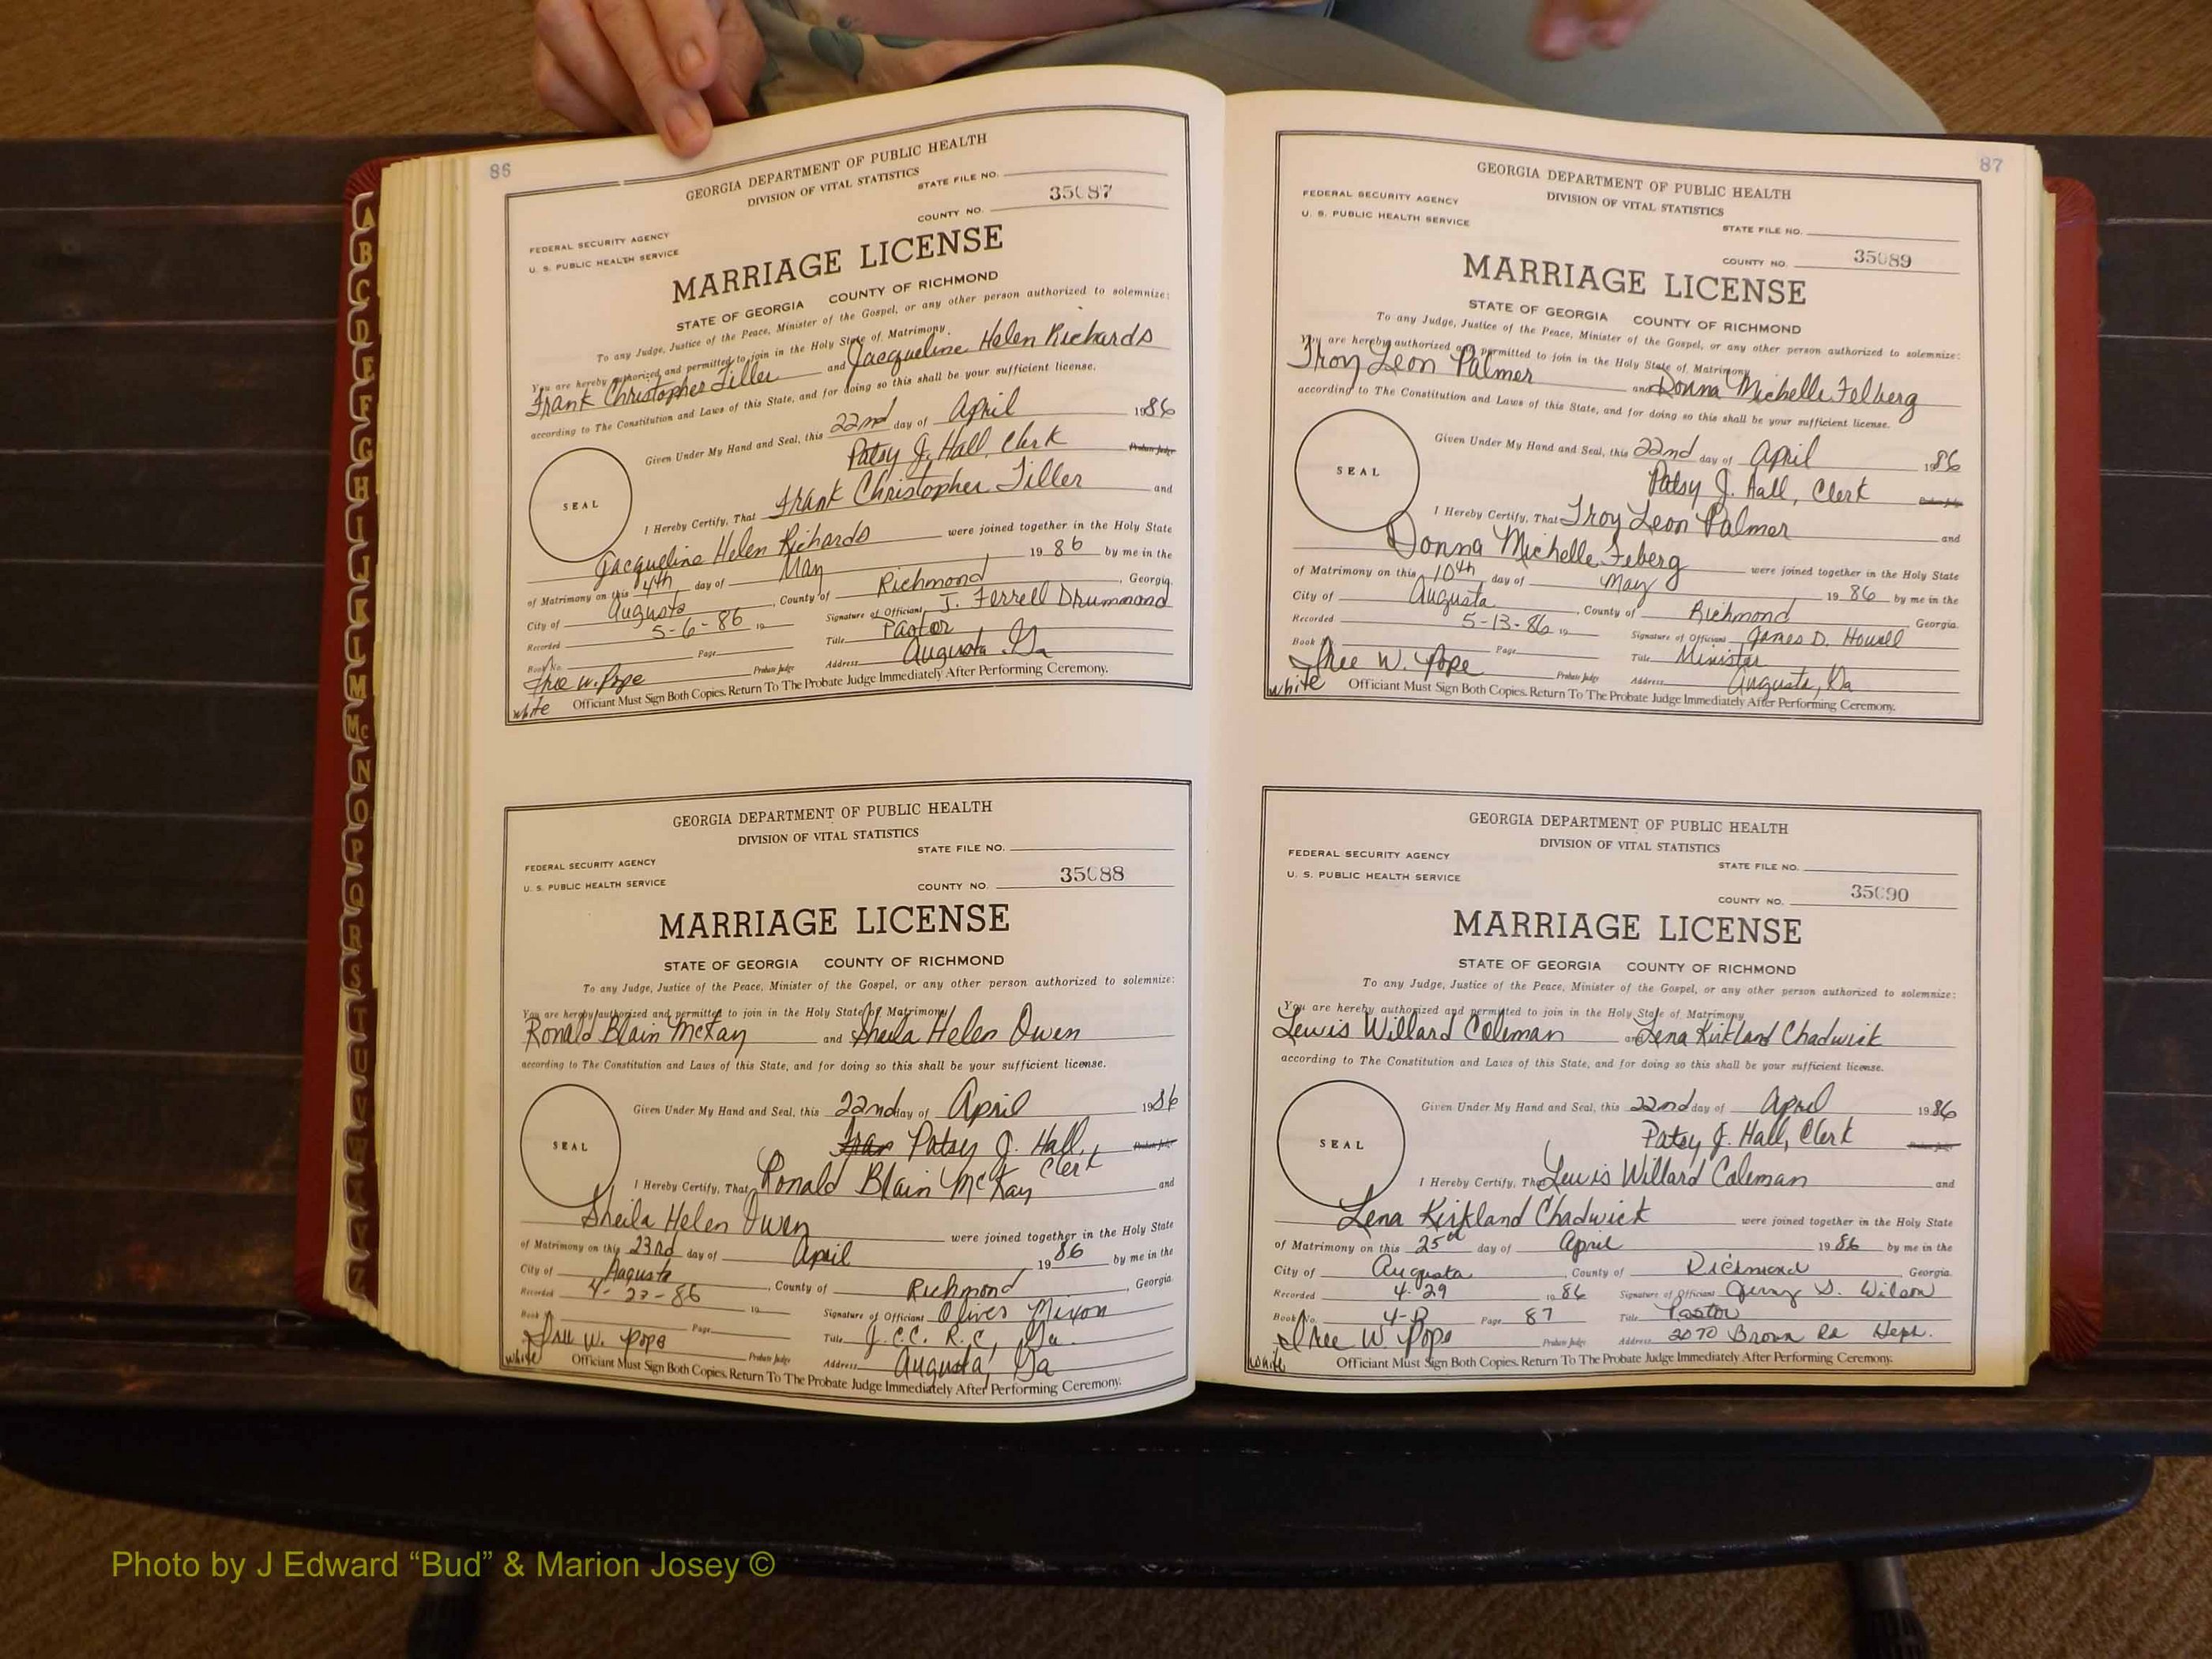 86
GEORGIA DEPARTMENT OF PUBLIC HEALTH
DIVISION OF VITAL STATISTICS
STATE FILE NO.
35087
COUNTY NO.
FEDERAL SECURITY AGENCY
U. S. PUBLIC HEALTH SERVICE
MARRIAGE LICENSE
STATE OF GEORGIA COUNTY OF RICHMOND
To any Judge, Justice of the Peace, Minister of the Gospel, or any other person authorized to solemnize:
You are hereby authorized and permitted to join in the Holy State of Matrimony
Frank Christopher Tiller and Jacqueline Helen Richards
according to The Constitution and Laws of this State, and for doing so this shall be your sufficient license.
Given Under My Hand and Seal, this 22nd day of April 1986
Patsy J. Hall, Clerk Probate Judge
SEAL
I Hereby Certify, That Frank Christopher Tiller and
Jacqueline Helen Richards were joined together in the Holy State
of Matrimony on this 4th day of May 19 86 by me in the
City of Augusta, County of Richmond, Georgia.
Recorded 5-6-86 19 Signature of Officiant J. Ferrell Drummond
Book No. Page Title Pastor
Probate Judge Address Augusta Ga
W. Pope
white Officiant Must Sign Both Copies. Return To The Probate Judge Immediately After Performing Ceremony.
GEORGIA DEPARTMENT OF PUBLIC HEALTH
DIVISION OF VITAL STATISTICS
STATE FILE NO.
FEDERAL SECURITY AGENCY
U. S. PUBLIC HEALTH SERVICE
COUNTY NO. 35088
MARRIAGE LICENSE
STATE OF GEORGIA COUNTY OF RICHMOND
To any Judge, Justice of the Peace, Minister of the Gospel, or any other person authorized to solemnize:
You are hereby authorized and permitted to join in the Holy State of Matrimony
Ronald Blain McKay and Sheila Helen Owen
according to The Constitution and Laws of this State, and for doing so this shall be your sufficient license.
Given Under My Hand and Seal, this 22nd day of April 1986
Patsy J. Hall, Probate Judge
Clerk
SEAL
I Hereby Certify, That Ronald Blain McKay and
Sheila Helen Owen were joined together in the Holy State
of Matrimony on this 23rd day of April 19 86 by me in the
City of Augusta, County of Richmond, Georgia.
Recorded 4-23-86 19 Signature of Officiant Oliver Mixon
Book Page Title J.C.C. R.C, Ga.
W. Pope Probate Judge Address Augusta, Ga
white Officiant Must Sign Both Copies. Return To The Probate Judge Immediately After Performing Ceremony.
87
GEORGIA DEPARTMENT OF PUBLIC HEALTH
DIVISION OF VITAL STATISTICS
FEDERAL SECURITY AGENCY
U. S. PUBLIC HEALTH SERVICE
STATE FILE NO.
COUNTY NO. 35089
MARRIAGE LICENSE
STATE OF GEORGIA COUNTY OF RICHMOND
To any Judge, Justice of the Peace, Minister of the Gospel, or any other person authorized to solemnize:
You are hereby authorized and permitted to join in the Holy State of Matrimony
Troy Leon Palmer and Donna Michelle Felberg
according to The Constitution and Laws of this State, and for doing so this shall be your sufficient license.
Given Under My Hand and Seal, this 22nd day of April 1986
Patsy J. Hall, Clerk Probate Judge
SEAL
I Hereby Certify, That Troy Leon Palmer and
Donna Michelle Feberg were joined together in the Holy State
of Matrimony on this 10th day of May 19 86 by me in the
City of Augusta, County of Richmond Georgia.
Recorded 5-13-86 19 Signature of Officiant James D. Howell
Book No. Page Title Minister
W. Pope Probate Judge Address Augusta, Ga
white Officiant Must Sign Both Copies. Return To The Probate Judge Immediately After Performing Ceremony.
GEORGIA DEPARTMENT OF PUBLIC HEALTH
DIVISION OF VITAL STATISTICS
FEDERAL SECURITY AGENCY
U. S. PUBLIC HEALTH SERVICE
STATE FILE NO.
COUNTY NO. 35090
MARRIAGE LICENSE
STATE OF GEORGIA COUNTY OF RICHMOND
To any Judge, Justice of the Peace, Minister of the Gospel, or any other person authorized to solemnize:
You are hereby authorized and permitted to join in the Holy State of Matrimony
Lewis Willard Coleman and Lena Kirkland Chadwick
according to The Constitution and Laws of this State, and for doing so this shall be your sufficient license.
Given Under My Hand and Seal, this 22nd day of April 1986
Patsy J. Hall, Clerk Probate Judge
SEAL
I Hereby Certify, That Lewis Willard Coleman and
Lena Kirkland Chadwick were joined together in the Holy State
of Matrimony on this 25th day of April 19 86 by me in the
City of Augusta, County of Richmond, Georgia.
Recorded 4-29 19 86 Signature of Officiant Jerry S. Wilson
Book No. Page 87 Title Pastor
W. Pope Probate Judge Address 2070 Brown Rd Heph.
white Officiant Must Sign Both Copies. Return To The Probate Judge Immediately After Performing Ceremony.
A
B
C
D
E
F
G
H
I
J
K
L
M
Mc
N
O
P
Q
R
S
T
U
V
W
X
Y
Z
Photo by J Edward “Bud” & Marion Josey ©